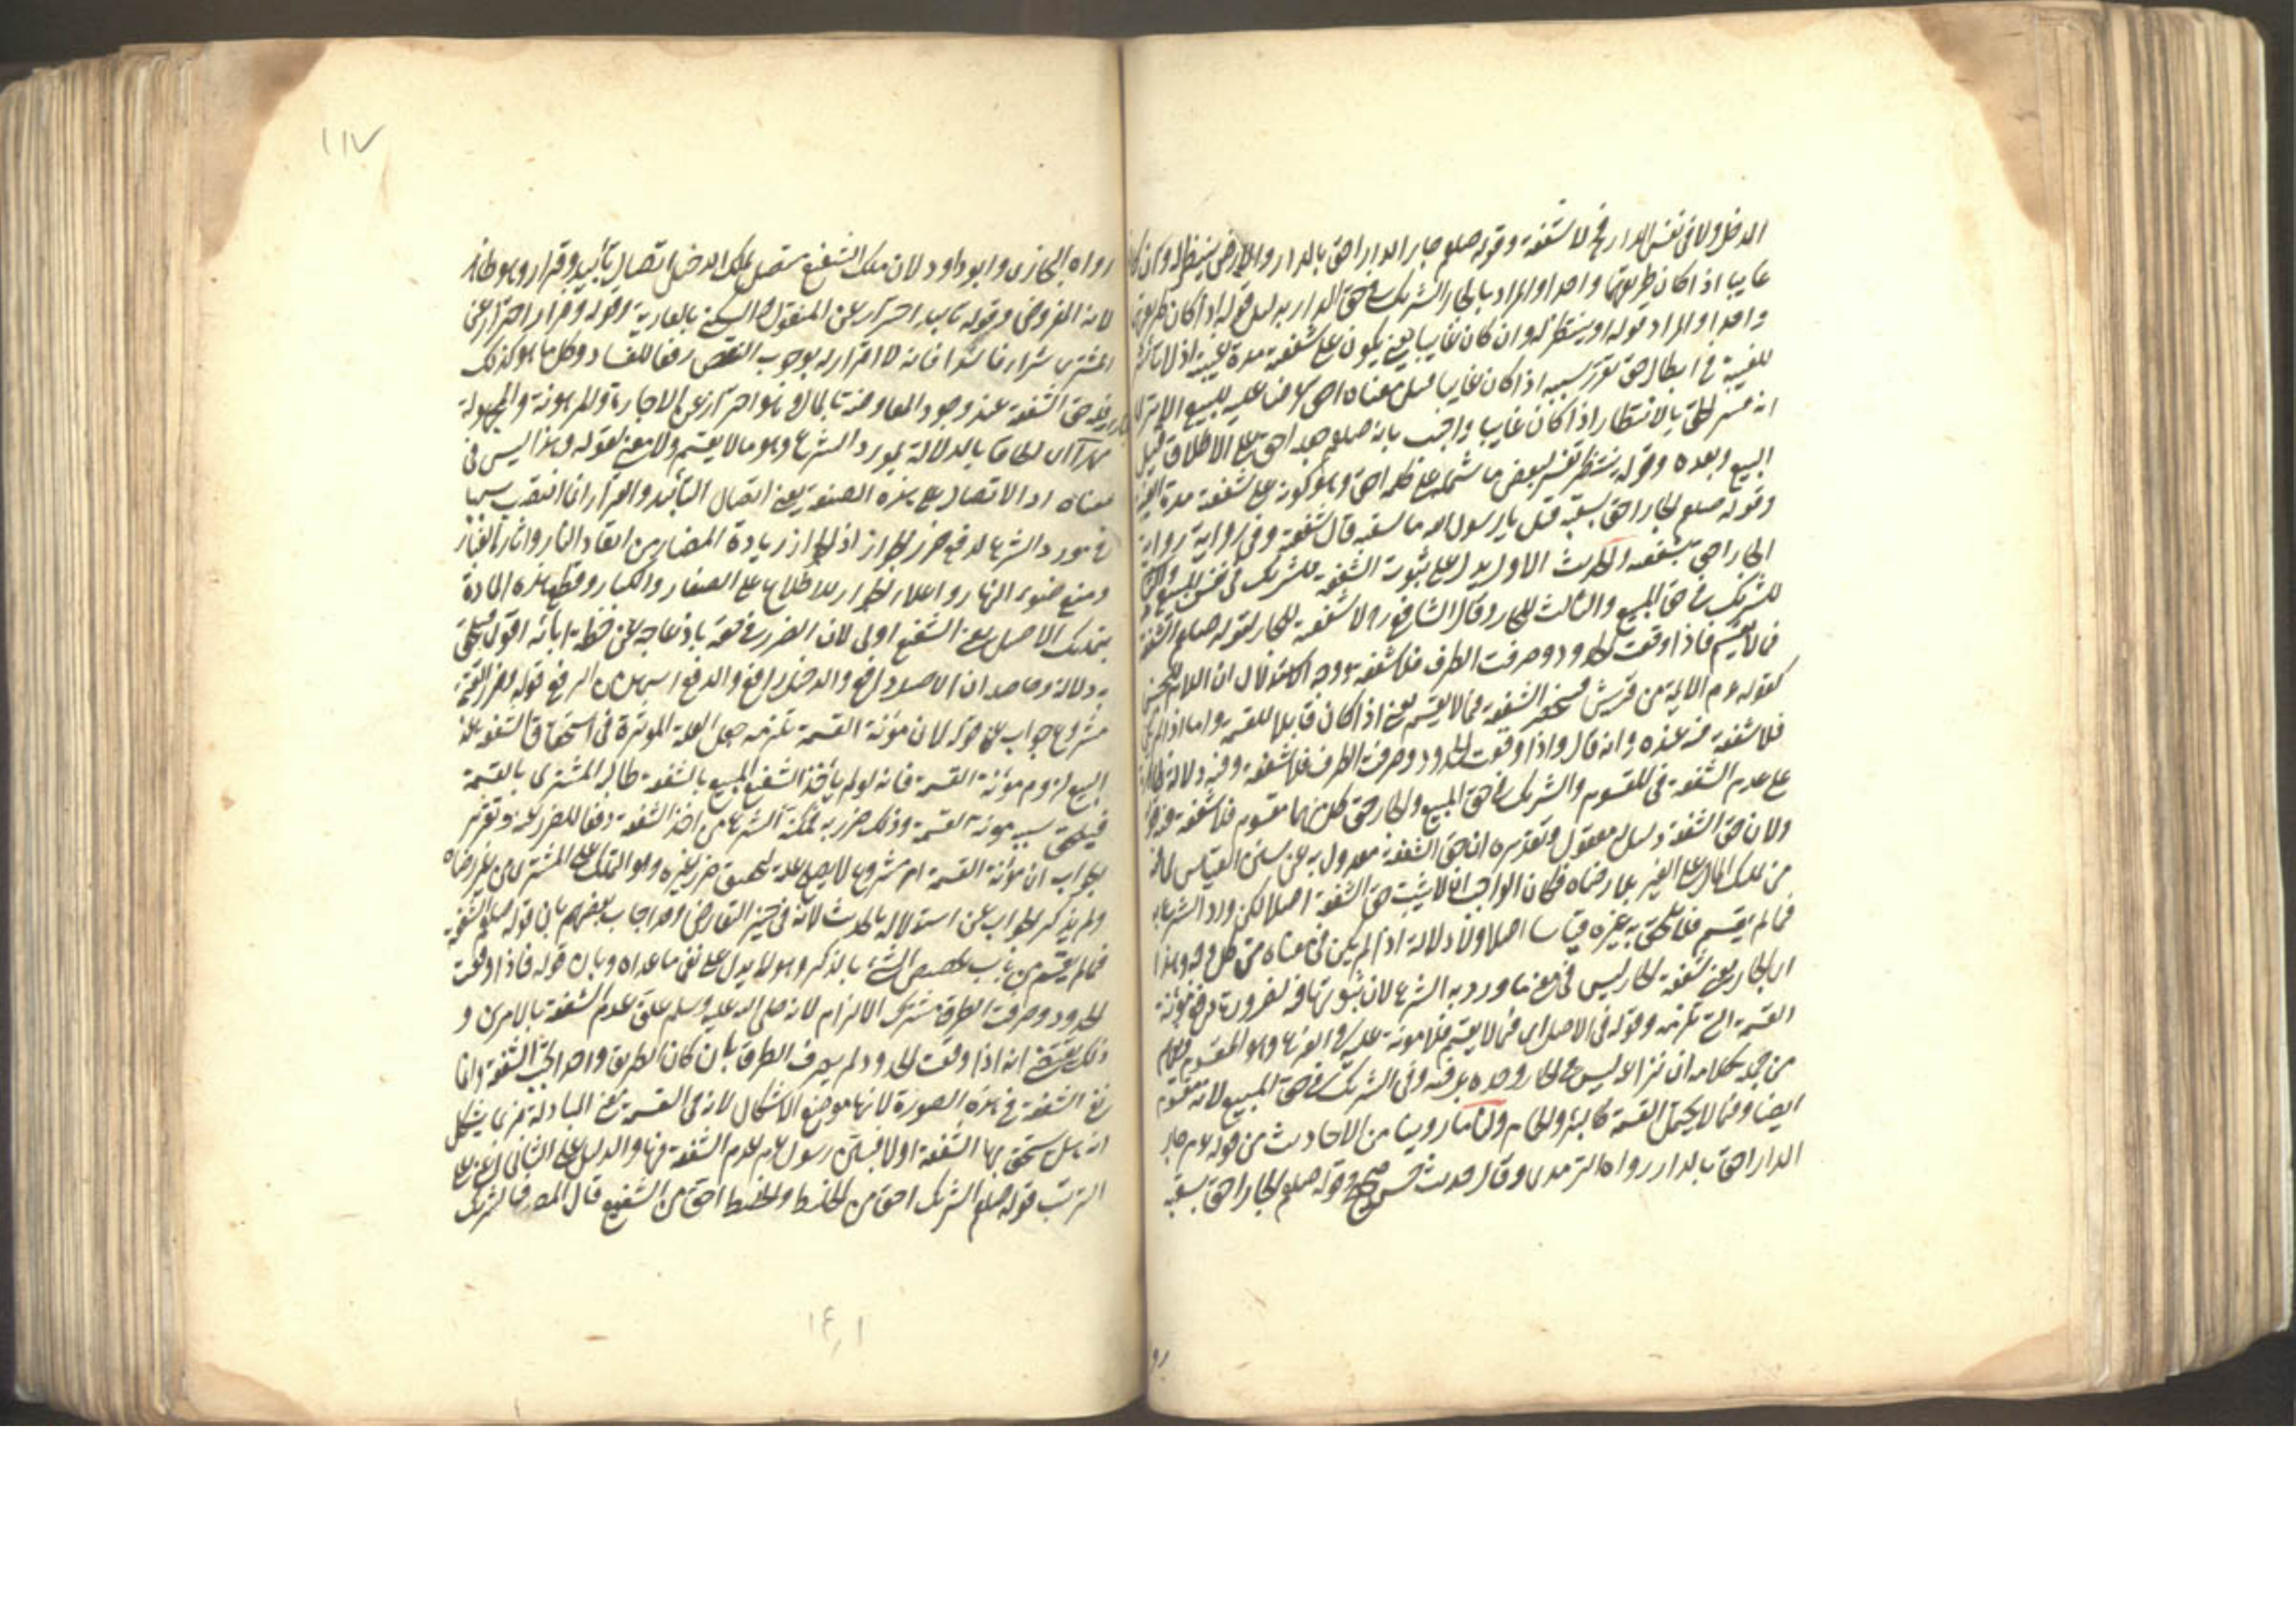 الدخيل ولا في نفس الدار فح لا شفعة وقوله صلعم جار الدار احق بالدار والارض ينتظر له وان كان
غايبا اذا كان طريقهما واحدا والمراد بالجار الشريك في حق الدار بدليل قوله اذا كان طريقهما
واحدا والمراد بقوله او ينتظر له وان كان غايبا يعني يكون على شفعته مدة غيبته اذ لا تاثير
للغيبة في ابطال حق تقرر سببه اذا كان غايبا قيل معناه احق عرضا عليه للبيع الا ترى
انه فسر الحق بالانتظار اذا كان غايبا واجيب بانه صلعم جعله احق على الاطلاق قبل
البيع وبعده وقوله ينتظر تفسير لبعض ما شمله كلمة احق وهو كونه على شفعته مدة الغيبة
وقوله صلعم الجار احق بسقبه قيل يا رسول الله ما سقبه قال شفعته وفي رواية رواية
الجار احق بشفعته والحديث الاول يدل على ثبوت الشفعة للشريك في نفس المبيع والثاني
للشريك في حق المبيع والثالث للجار وقال الشافعي رح لا شفعة للجار لقوله صلعم الشفعة
فيما لا يقسم فاذا وقعت الحدود وصرفت الطرق فلا شفعة ووجه الاستدلال ان اللام للجنس
كقوله عم الايمة من قريش فتنحصر الشفعة فيما لا يقسم يعني اذا كان قابلا للقسمة واما اذا لم يكن
فلا شفعة فيه عنده وانه قال واذا وقعت الحدود وصرفت الطرق فلا شفعة وفيه دلالة ظاهرة
على عدم الشفعة في المقسوم والشريك في حق المبيع والجار حق كل منهما مقسوم فلا شفعة فيه
ولان حق الشفعة دليل معقول وتقديره ان حق الشفعة معدول به عن سنن القياس لما فيه
من تملك المال على الغير بلا رضاه فكان الواجب ان لا يثبت حق الشفعة اصلا لكن ورد الشرع به
فيما لم يقسم فلا يلحق به غيره قياسا اصلا ولا دلالة اذا لم يكن في معناه من كل وجه وهذا
اي الجار يعني شفعة الجار ليس في معنى ما ورد به الشرع لان ثبوتها فيه لضرورة دفع مؤنة
القسمة التي تلزمه وقوله في الاصل اي فيما لا يقسم فلا مؤنة عليه في الفرع وهو المقسوم فعلم
من جملة كلامه ان نزاعه ليس في الجار وحده بل فيه وفي الشريك في حق المبيع لانه مقسوم
ايضا وفيما لا يحتمل القسمة كالبئر والحمام ولنا ما روينا من الاحاديث من قوله عم جار
الدار احق بالدار رواه الترمذي وقال حديث حسن صحيح وقوله صلعم الجار احق بسقبه
رو
١١٧
رواه البخاري وابو داود ولان ملك الشفيع متصل بملك الدخيل اتصال تأبيد وقرار وهو ظاهر
لانه المفروض وقوله تأبيد احتراز عن المنقول والسكنى بالعارية وقوله وقرار احتراز عن
المشتري شراء فاسدا فانه لا قرار له بوجوب النقص رفعا للفساد وكل ما هو كذلك
فله حق الشفعة عند وجود المعاوضة بالمال وهو احتراز عن الاجارة والمرهونة والمجهولة
مهرا الحاقا بالدلالة بمورد الشرع وهو ما لا يقسم ولا معنى لقوله وهذا ليس في
معناه اذ الاتصال على هذه الصفة يعني اتصال التأبيد والقرار انما انتصب سببا
في مورد الشرع لدفع ضرر الجوار اذ الجوار زيادة المضار من ايقاد النار واثارة الغبار
ومنع ضوء النهار واعلاء الجدار للاطلاع على الصغار والكبار وقطع هذه المادة
بتملك الاصيل يعني الشفيع اولى لان الضرر في حقه بازعاجه عن خطة ابائه اقوى فيلحق
به دلالة وحاصله ان الاصيل دافع والدخيل رافع والدفع اسهل من الرفع قوله وضرر القسمة
مشروع جواب عن قوله لان مؤنة القسمة تلزمه جعل العلة المؤثرة في استحقاق الشفعة عند
البيع لزوم مؤنة القسمة فانه لو لم يأخذ الشفيع المبيع بالشفعة طالبه المشتري بالقسمة
فيلحقه بسببه مؤنة القسمة وذلك ضرر به فمكنه الشرع من اخذ الشفعة دفعا للضرر عنه وتقرير
الجواب ان مؤنة القسمة امر مشروع لا يصلح علة لتحقيق ضرر غيره وهو التملك على المشتري من غير رضاه
ولم يذكر الجواب عن استدلاله بالحديث لانه في حيز التعارض وقد اجاب بعضهم بان قوله صلعم الشفعة
فيما لم يقسم من باب تخصيص الشيء بالذكر وهو لا يدل على نفي ما عداه وبان قوله فاذا وقعت
الحدود وصرفت الطرق مشترك الالزام لانه صلى الله عليه وسلم علق عدم الشفعة بالامرين و
ذلك يقتضي انه اذا وقعت الحدود ولم يصرف الطرق بان كان الطريق واحدا تجب الشفعة وانما
نفي الشفعة في هذه الصورة لانها موضع الاشكال لان في القسمة معنى المبادلة فربما يشكل
انه هل يستحق بها الشفعة اولا فبين رسول عم عدم الشفعة فيها والدليل على الثاني اي على
الترتيب قوله صلعم الشريك احق من الخليط والخليط احق من الشفيع قال المص فالشريك